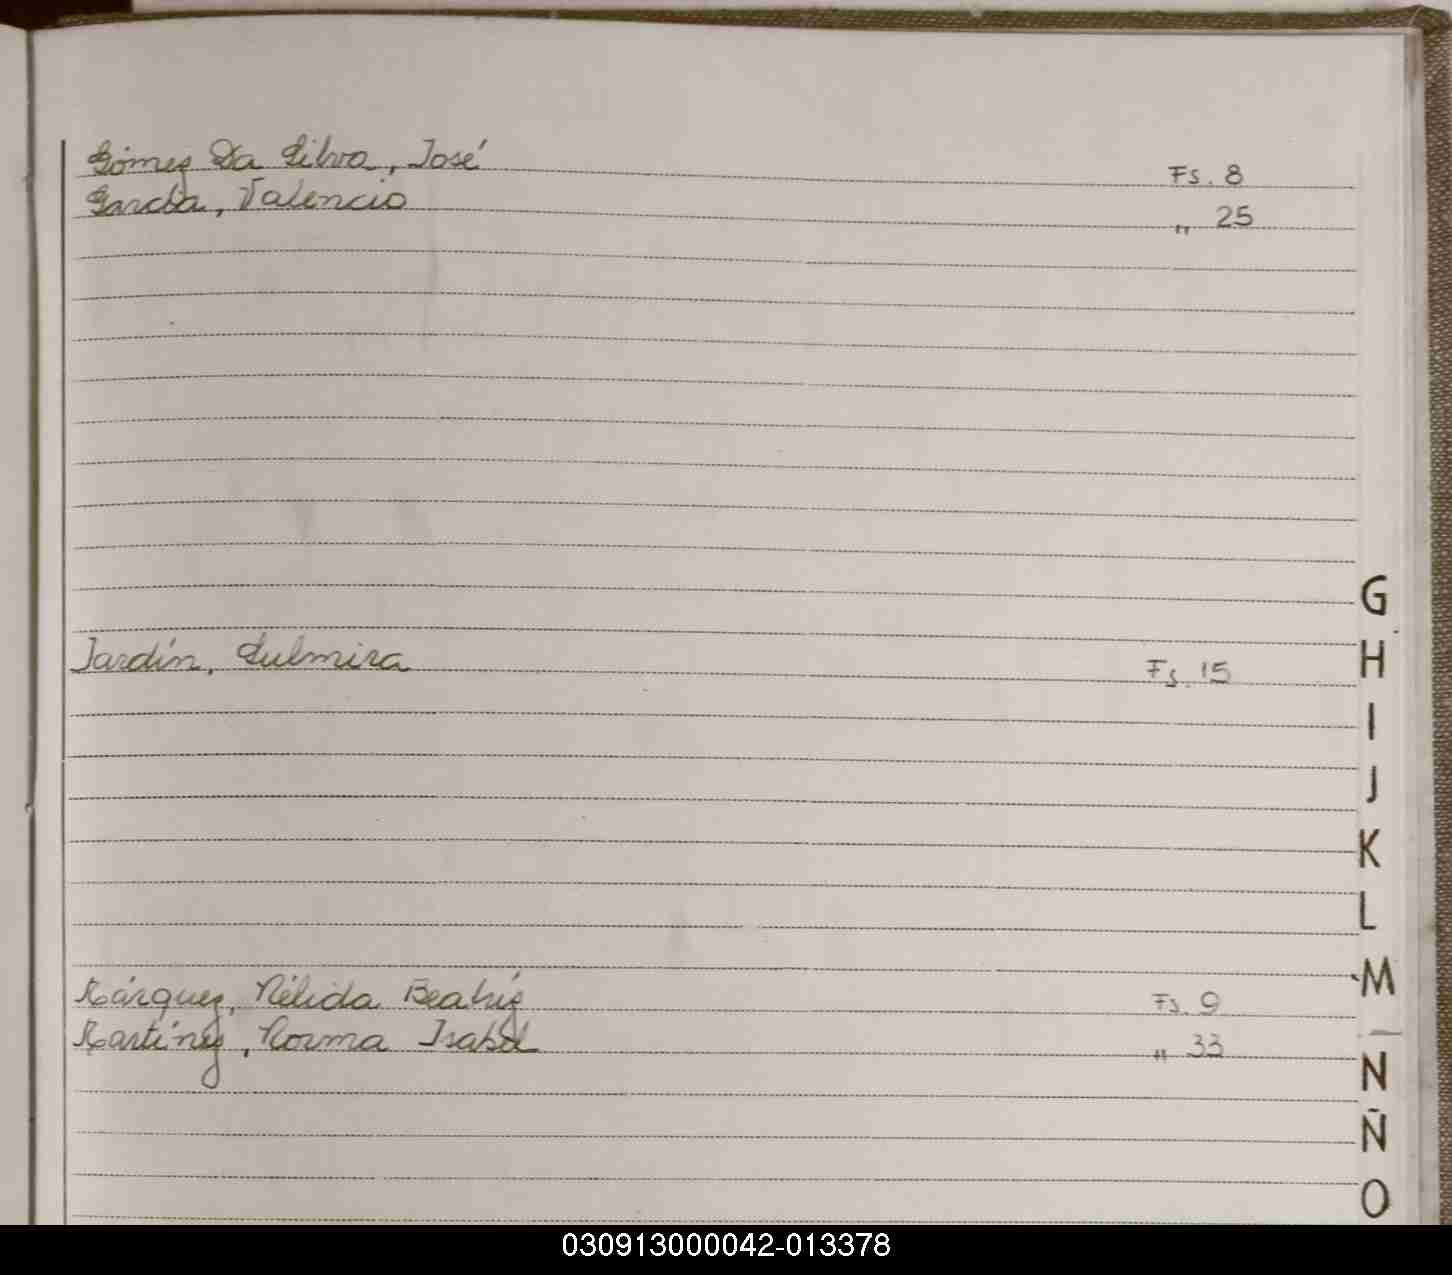 Gómez Da Silva, José Fs. 8
García, Valencio " 25
G
Jardín, Zulmira Fs. 15
H
I
J
K
L
M
Márquez, Nélida Beatriz Fs. 9
Martínez, Norma Isabel " 33
N
Ñ
O
030913000042-013378